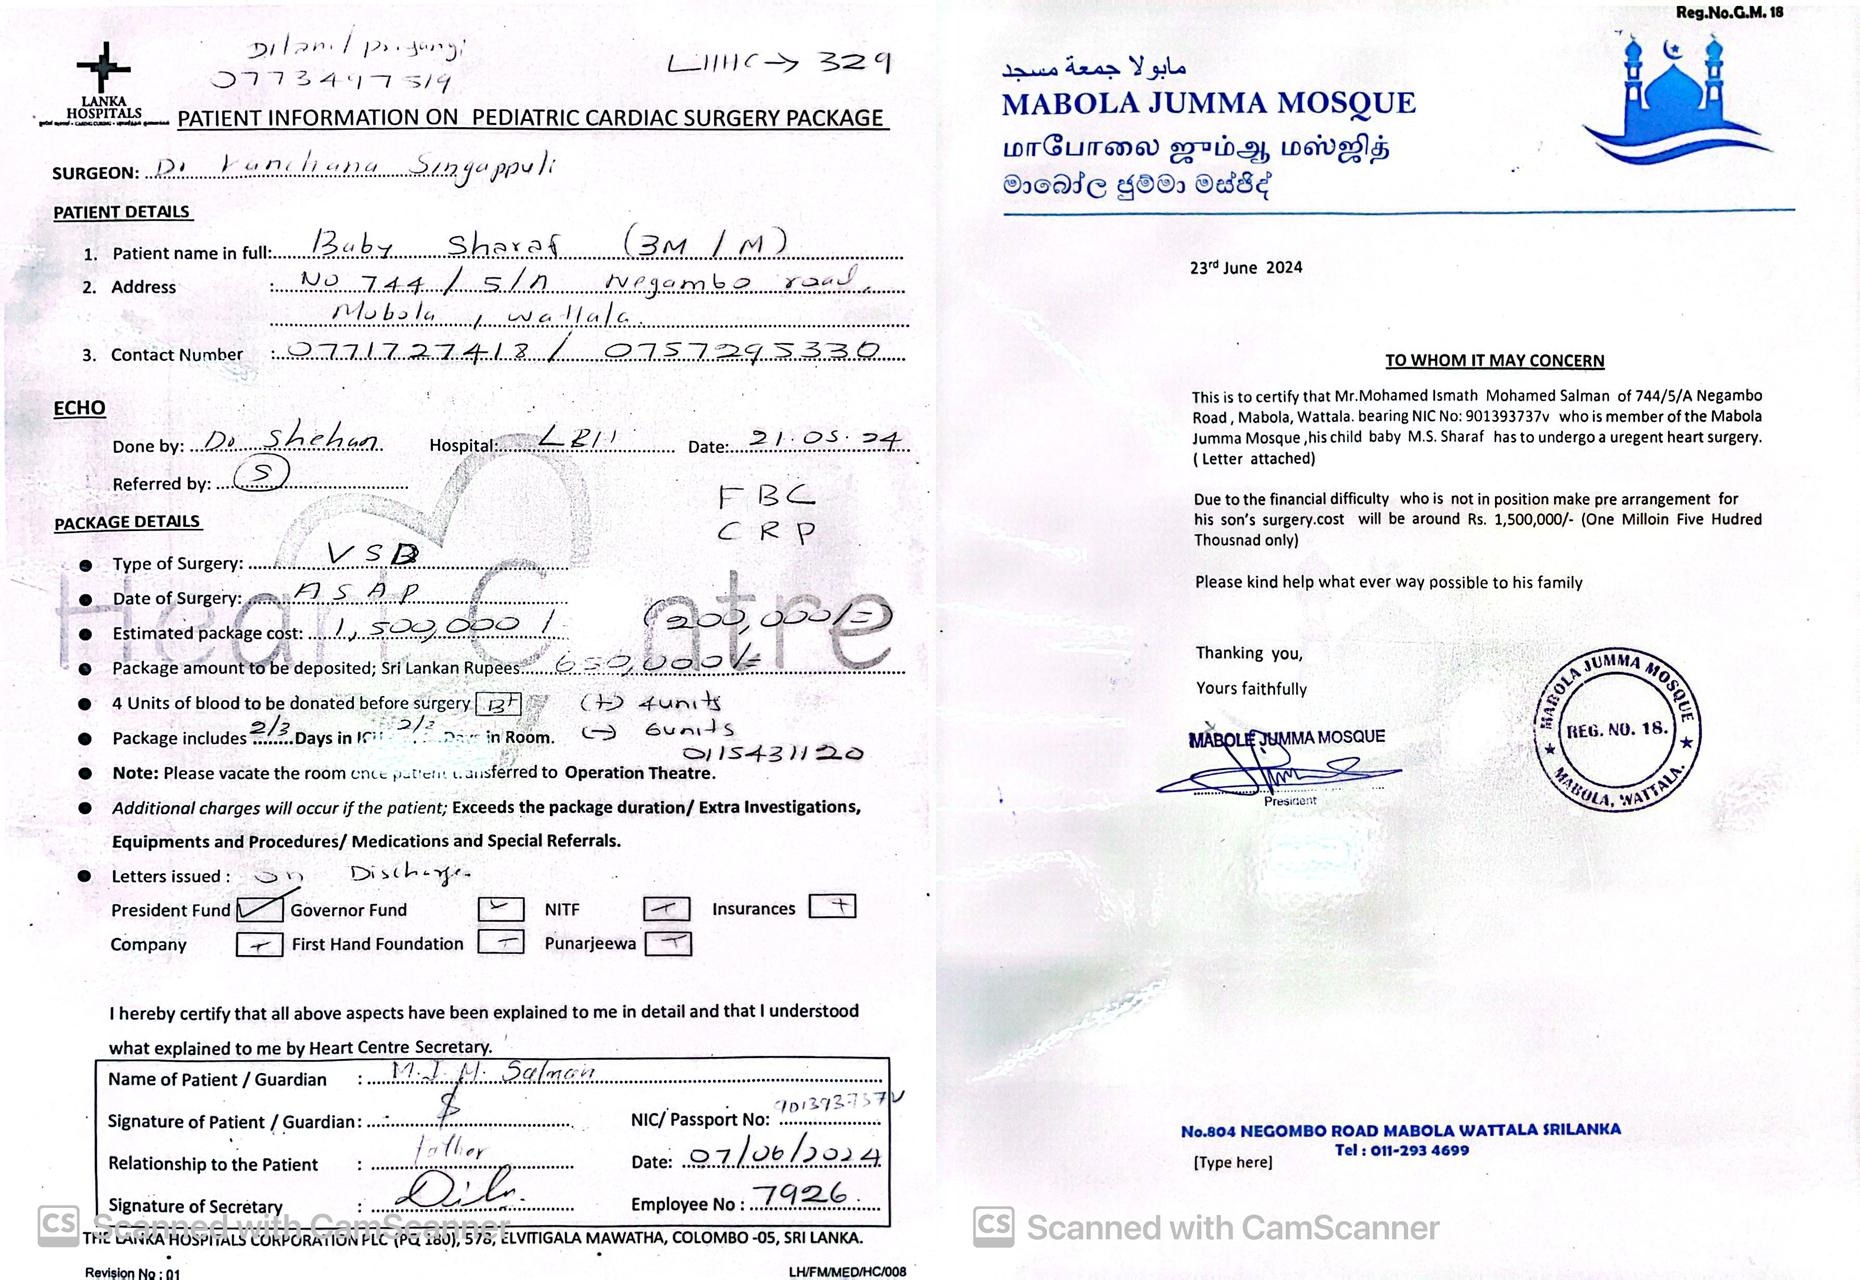 Dilani / priyangi
0773497519
LHHC → 329
LANKA
HOSPITALS
PATIENT INFORMATION ON PEDIATRIC CARDIAC SURGERY PACKAGE
SURGEON: Dr Kanchana Singappuli
PATIENT DETAILS
1. Patient name in full: Baby Sharaf (3M / M)
2. Address : No 744 / 5/A Negambo road,
Mabola, Wattala.
3. Contact Number : 0771727418 / 0757295330
ECHO
Done by: Dr Shehan Hospital: Date: 21.05.24
Referred by: S
FBC
CRP
PACKAGE DETAILS
Heart Centre
● Type of Surgery: VSD
● Date of Surgery: ASAP
● Estimated package cost: 1,500,000 /- (200,000/=)
● Package amount to be deposited; Sri Lankan Rupees 650,000/=
● 4 Units of blood to be donated before surgery B+ (+) 4units
● Package includes 2/3 Days in ICU 2/3 Days in Room. (-) 6units
0115431120
● Note: Please vacate the room once patient transferred to Operation Theatre.
● Additional charges will occur if the patient; Exceeds the package duration/ Extra Investigations,
Equipments and Procedures/ Medications and Special Referrals.
● Letters issued : on Discharge
President Fund Governor Fund NITF Insurances
Company First Hand Foundation Punarjeewa
I hereby certify that all above aspects have been explained to me in detail and that I understood
what explained to me by Heart Centre Secretary.
Name of Patient / Guardian : M.I.M. Salman
Signature of Patient / Guardian : NIC/ Passport No: 901393737V
Relationship to the Patient : father Date: 07/06/2024
Signature of Secretary : Employee No : 7926
CS Scanned with CamScanner
THE LANKA HOSPITALS CORPORATION PLC (PQ 180), 578, ELVITIGALA MAWATHA, COLOMBO -05, SRI LANKA.
Revision No : 01 LH/FM/MED/HC/008
Reg.No.G.M. 18
مابولا جمعة مسجد
MABOLA JUMMA MOSQUE
மாபோலை ஜும்ஆ மஸ்ஜித்
මාබෝල ජුම්මා මස්ජිද්
23rd June 2024
TO WHOM IT MAY CONCERN
This is to certify that Mr.Mohamed Ismath Mohamed Salman of 744/5/A Negambo
Road , Mabola, Wattala. bearing NIC No: 901393737v who is member of the Mabola
Jumma Mosque ,his child baby M.S. Sharaf has to undergo a uregent heart surgery.
( Letter attached)
Due to the financial difficulty who is not in position make pre arrangement for
his son's surgery.cost will be around Rs. 1,500,000/- (One Milloin Five Hudred
Thousnad only)
Please kind help what ever way possible to his family
Thanking you,
Yours faithfully
MABOLE JUMMA MOSQUE
President
MABOLA JUMMA MOSQUE
REG. NO. 18.
★ MABOLA, WATTALA. ★
No.804 NEGOMBO ROAD MABOLA WATTALA SRILANKA
Tel : 011-293 4699
[Type here]
CS Scanned with CamScanner